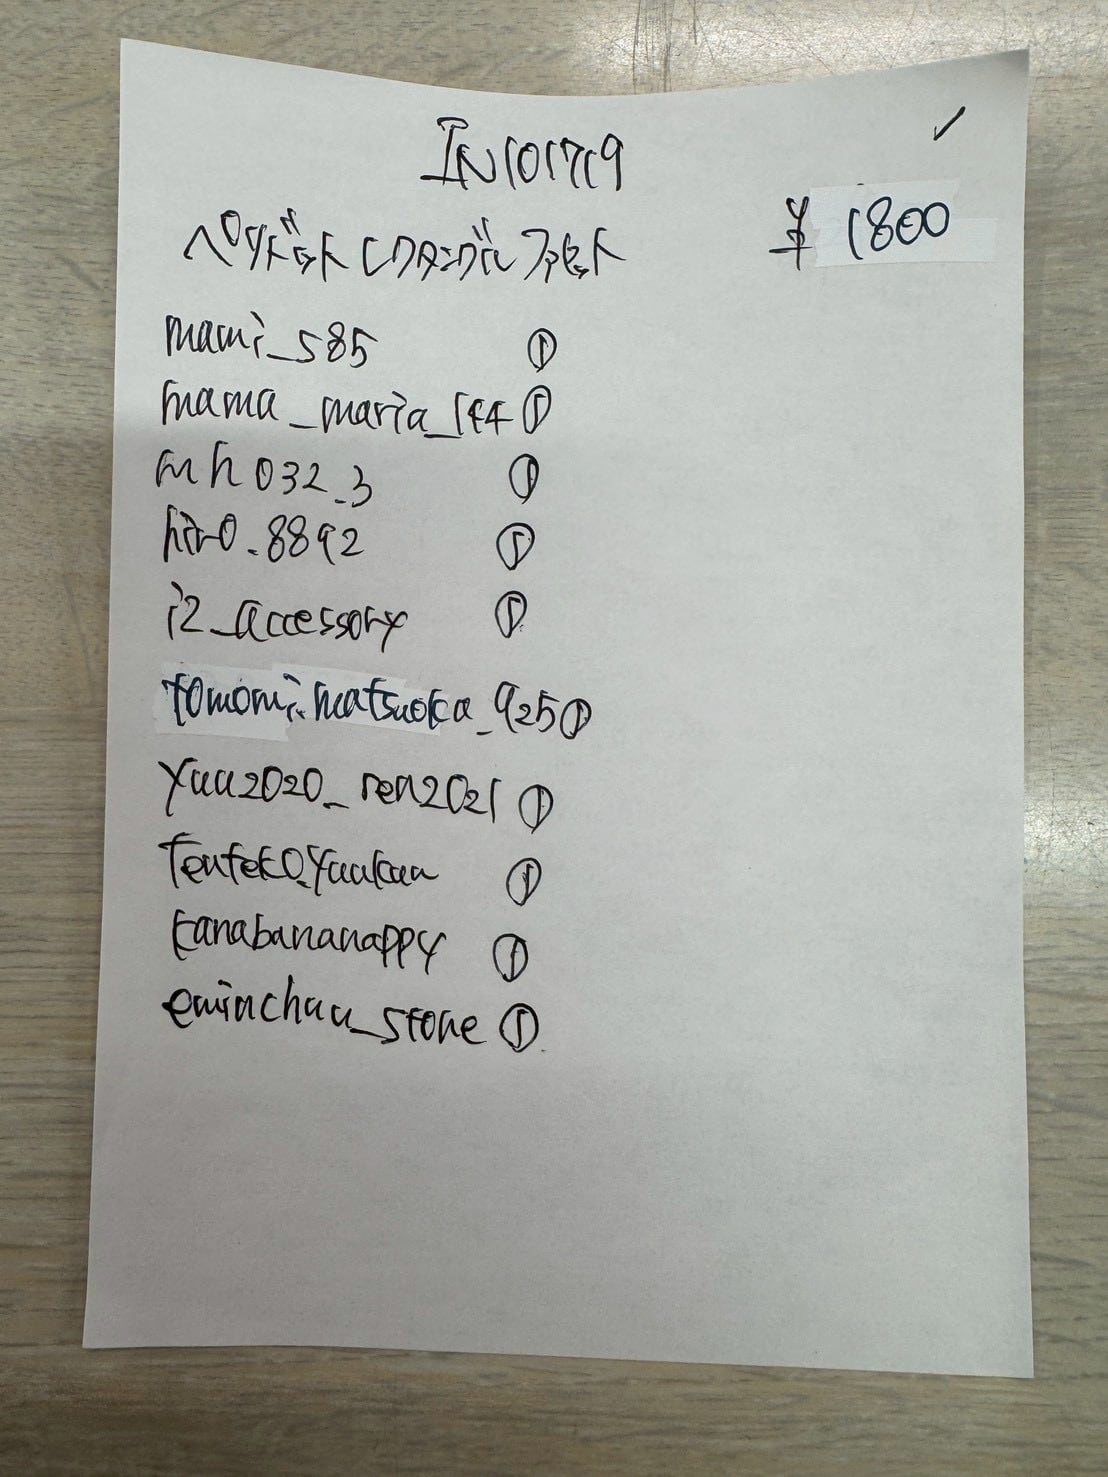 IN101719 ✓
ペリドットレクタングルファセット ¥1800
mami_s85 ①
mama_maria_144 ①
mh032_3 ①
hiro.8892 ①
i2_accessory ①
tomomi.matsuoka_925 ①
yuu2020_ren2021 ①
tenteko.yuukun ①
kanabananappy ①
eminchuu_stone ①